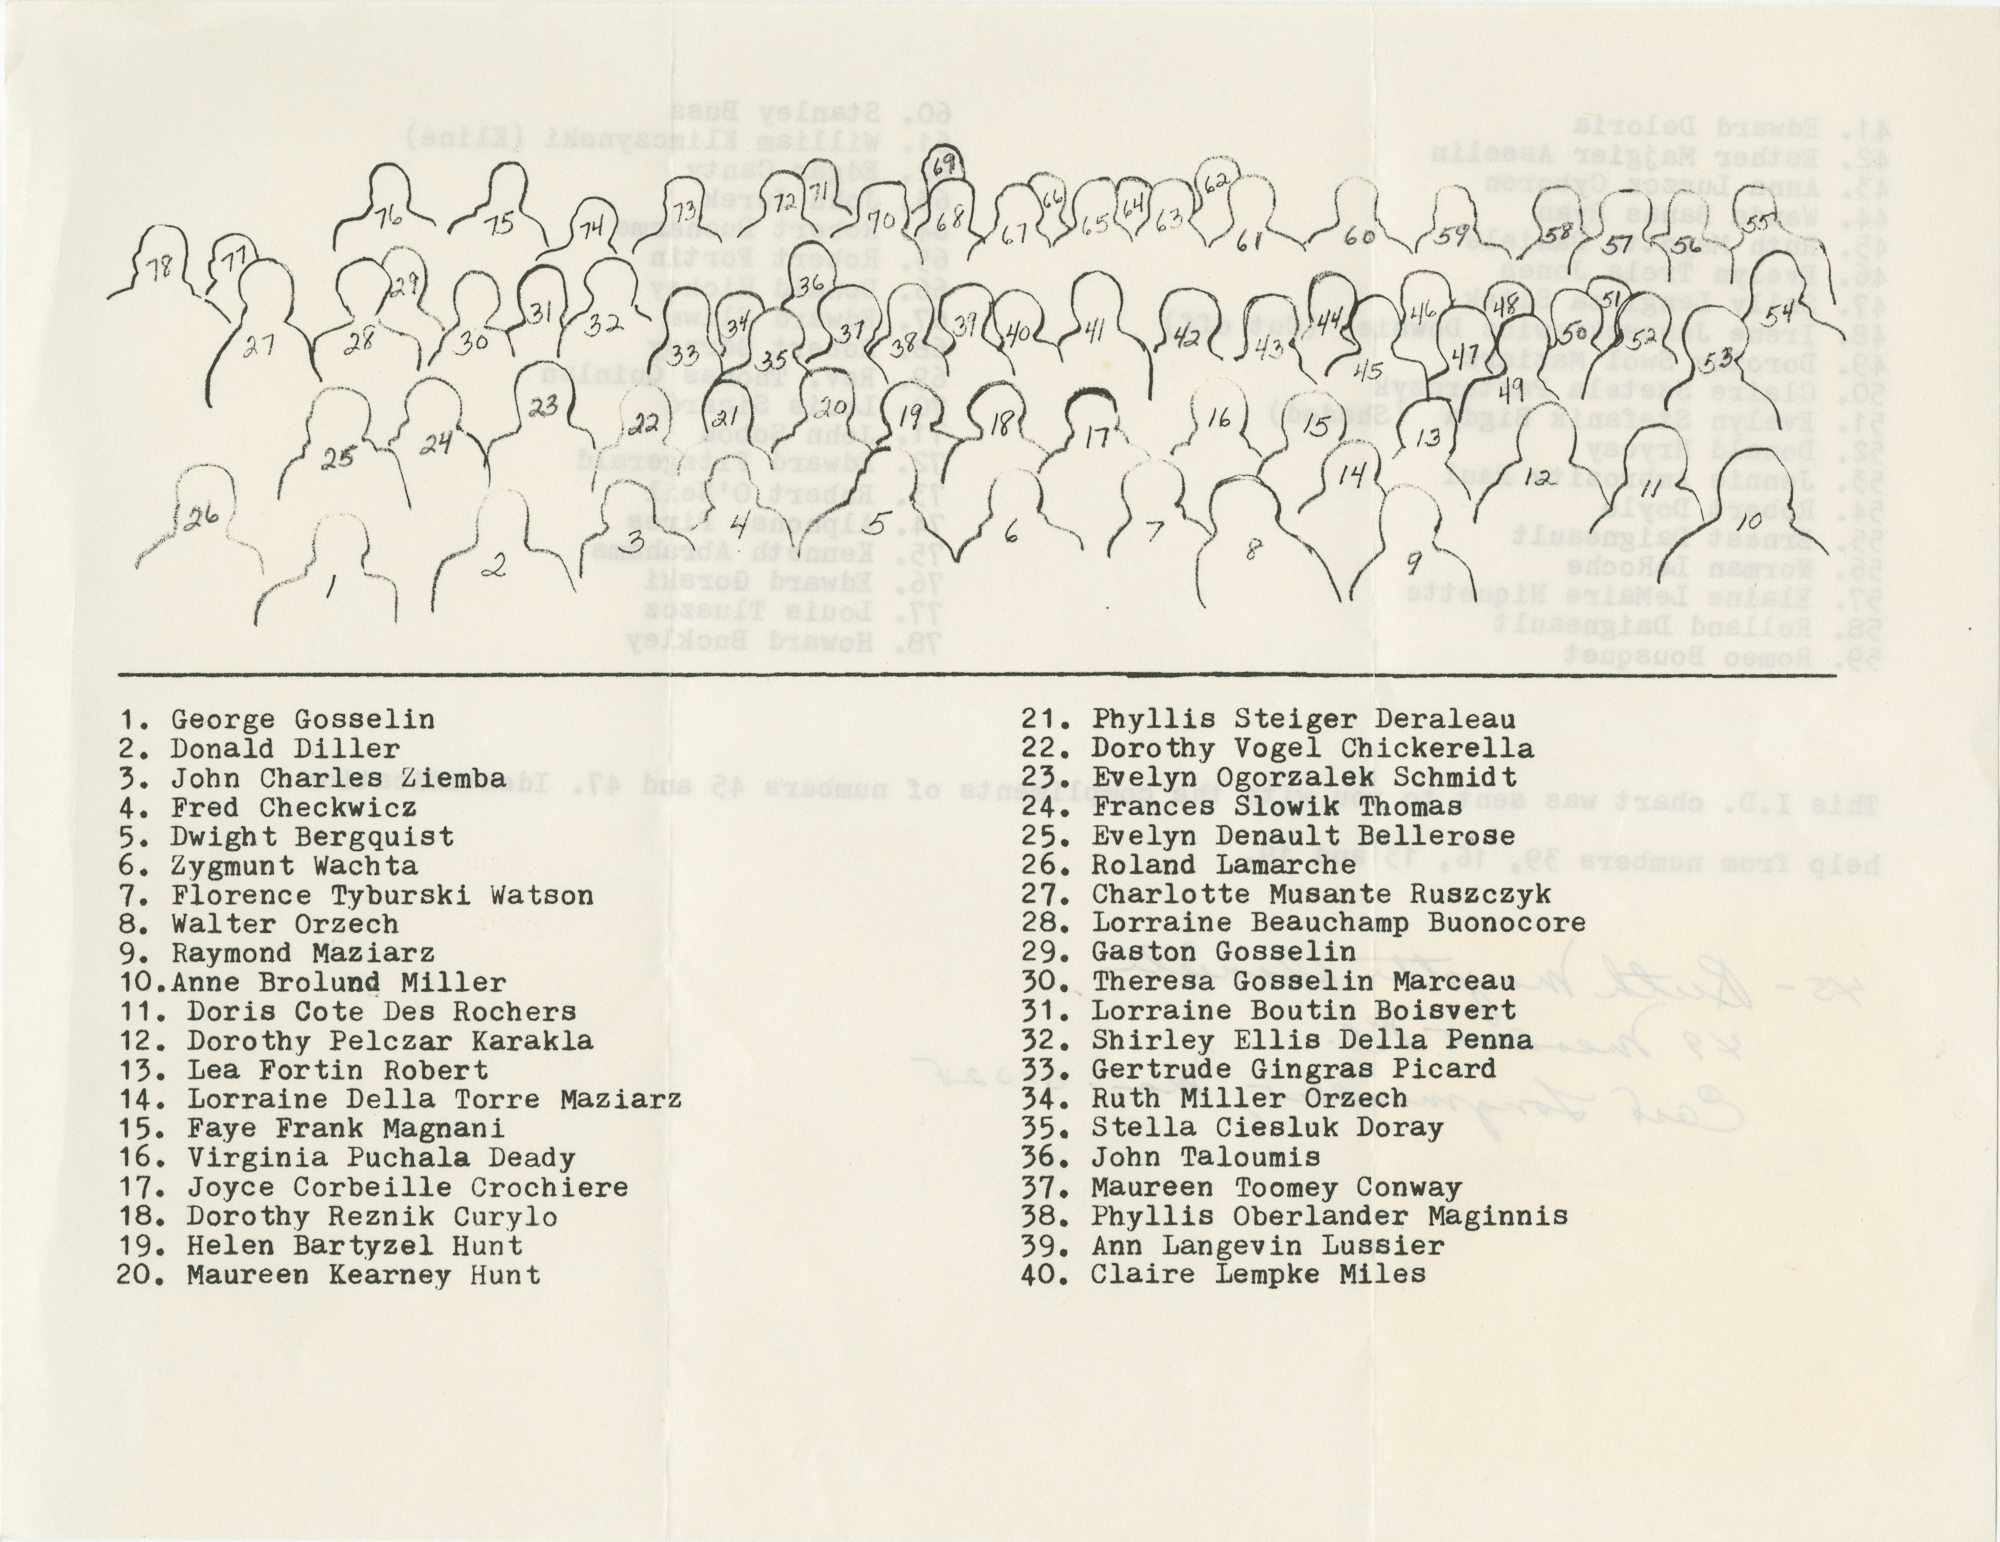 76 75 74 73 72 71 70 69 68 67 66 65 64 63 62 61 60 59 58 57 56 55
78 77 29 36 54
27 28 30 31 32 33 34 35 37 38 39 40 41 42 43 44 45 46 47 48 49 50 51 52 53
25 24 23 22 21 20 19 18 17 16 15 14 13 12 11 10
26 1 2 3 4 5 6 7 8 9
1. George Gosselin
2. Donald Diller
3. John Charles Ziemba
4. Fred Checkwicz
5. Dwight Bergquist
6. Zygmunt Wachta
7. Florence Tyburski Watson
8. Walter Orzech
9. Raymond Maziarz
10. Anne Brolund Miller
11. Doris Cote Des Rochers
12. Dorothy Pelczar Karakla
13. Lea Fortin Robert
14. Lorraine Della Torre Maziarz
15. Faye Frank Magnani
16. Virginia Puchala Deady
17. Joyce Corbeille Crochiere
18. Dorothy Reznik Curylo
19. Helen Bartyzel Hunt
20. Maureen Kearney Hunt
21. Phyllis Steiger Deraleau
22. Dorothy Vogel Chickerella
23. Evelyn Ogorzalek Schmidt
24. Frances Slowik Thomas
25. Evelyn Denault Bellerose
26. Roland Lamarche
27. Charlotte Musante Ruszczyk
28. Lorraine Beauchamp Buonocore
29. Gaston Gosselin
30. Theresa Gosselin Marceau
31. Lorraine Boutin Boisvert
32. Shirley Ellis Della Penna
33. Gertrude Gingras Picard
34. Ruth Miller Orzech
35. Stella Ciesluk Doray
36. John Taloumis
37. Maureen Toomey Conway
38. Phyllis Oberlander Maginnis
39. Ann Langevin Lussier
40. Claire Lempke Miles